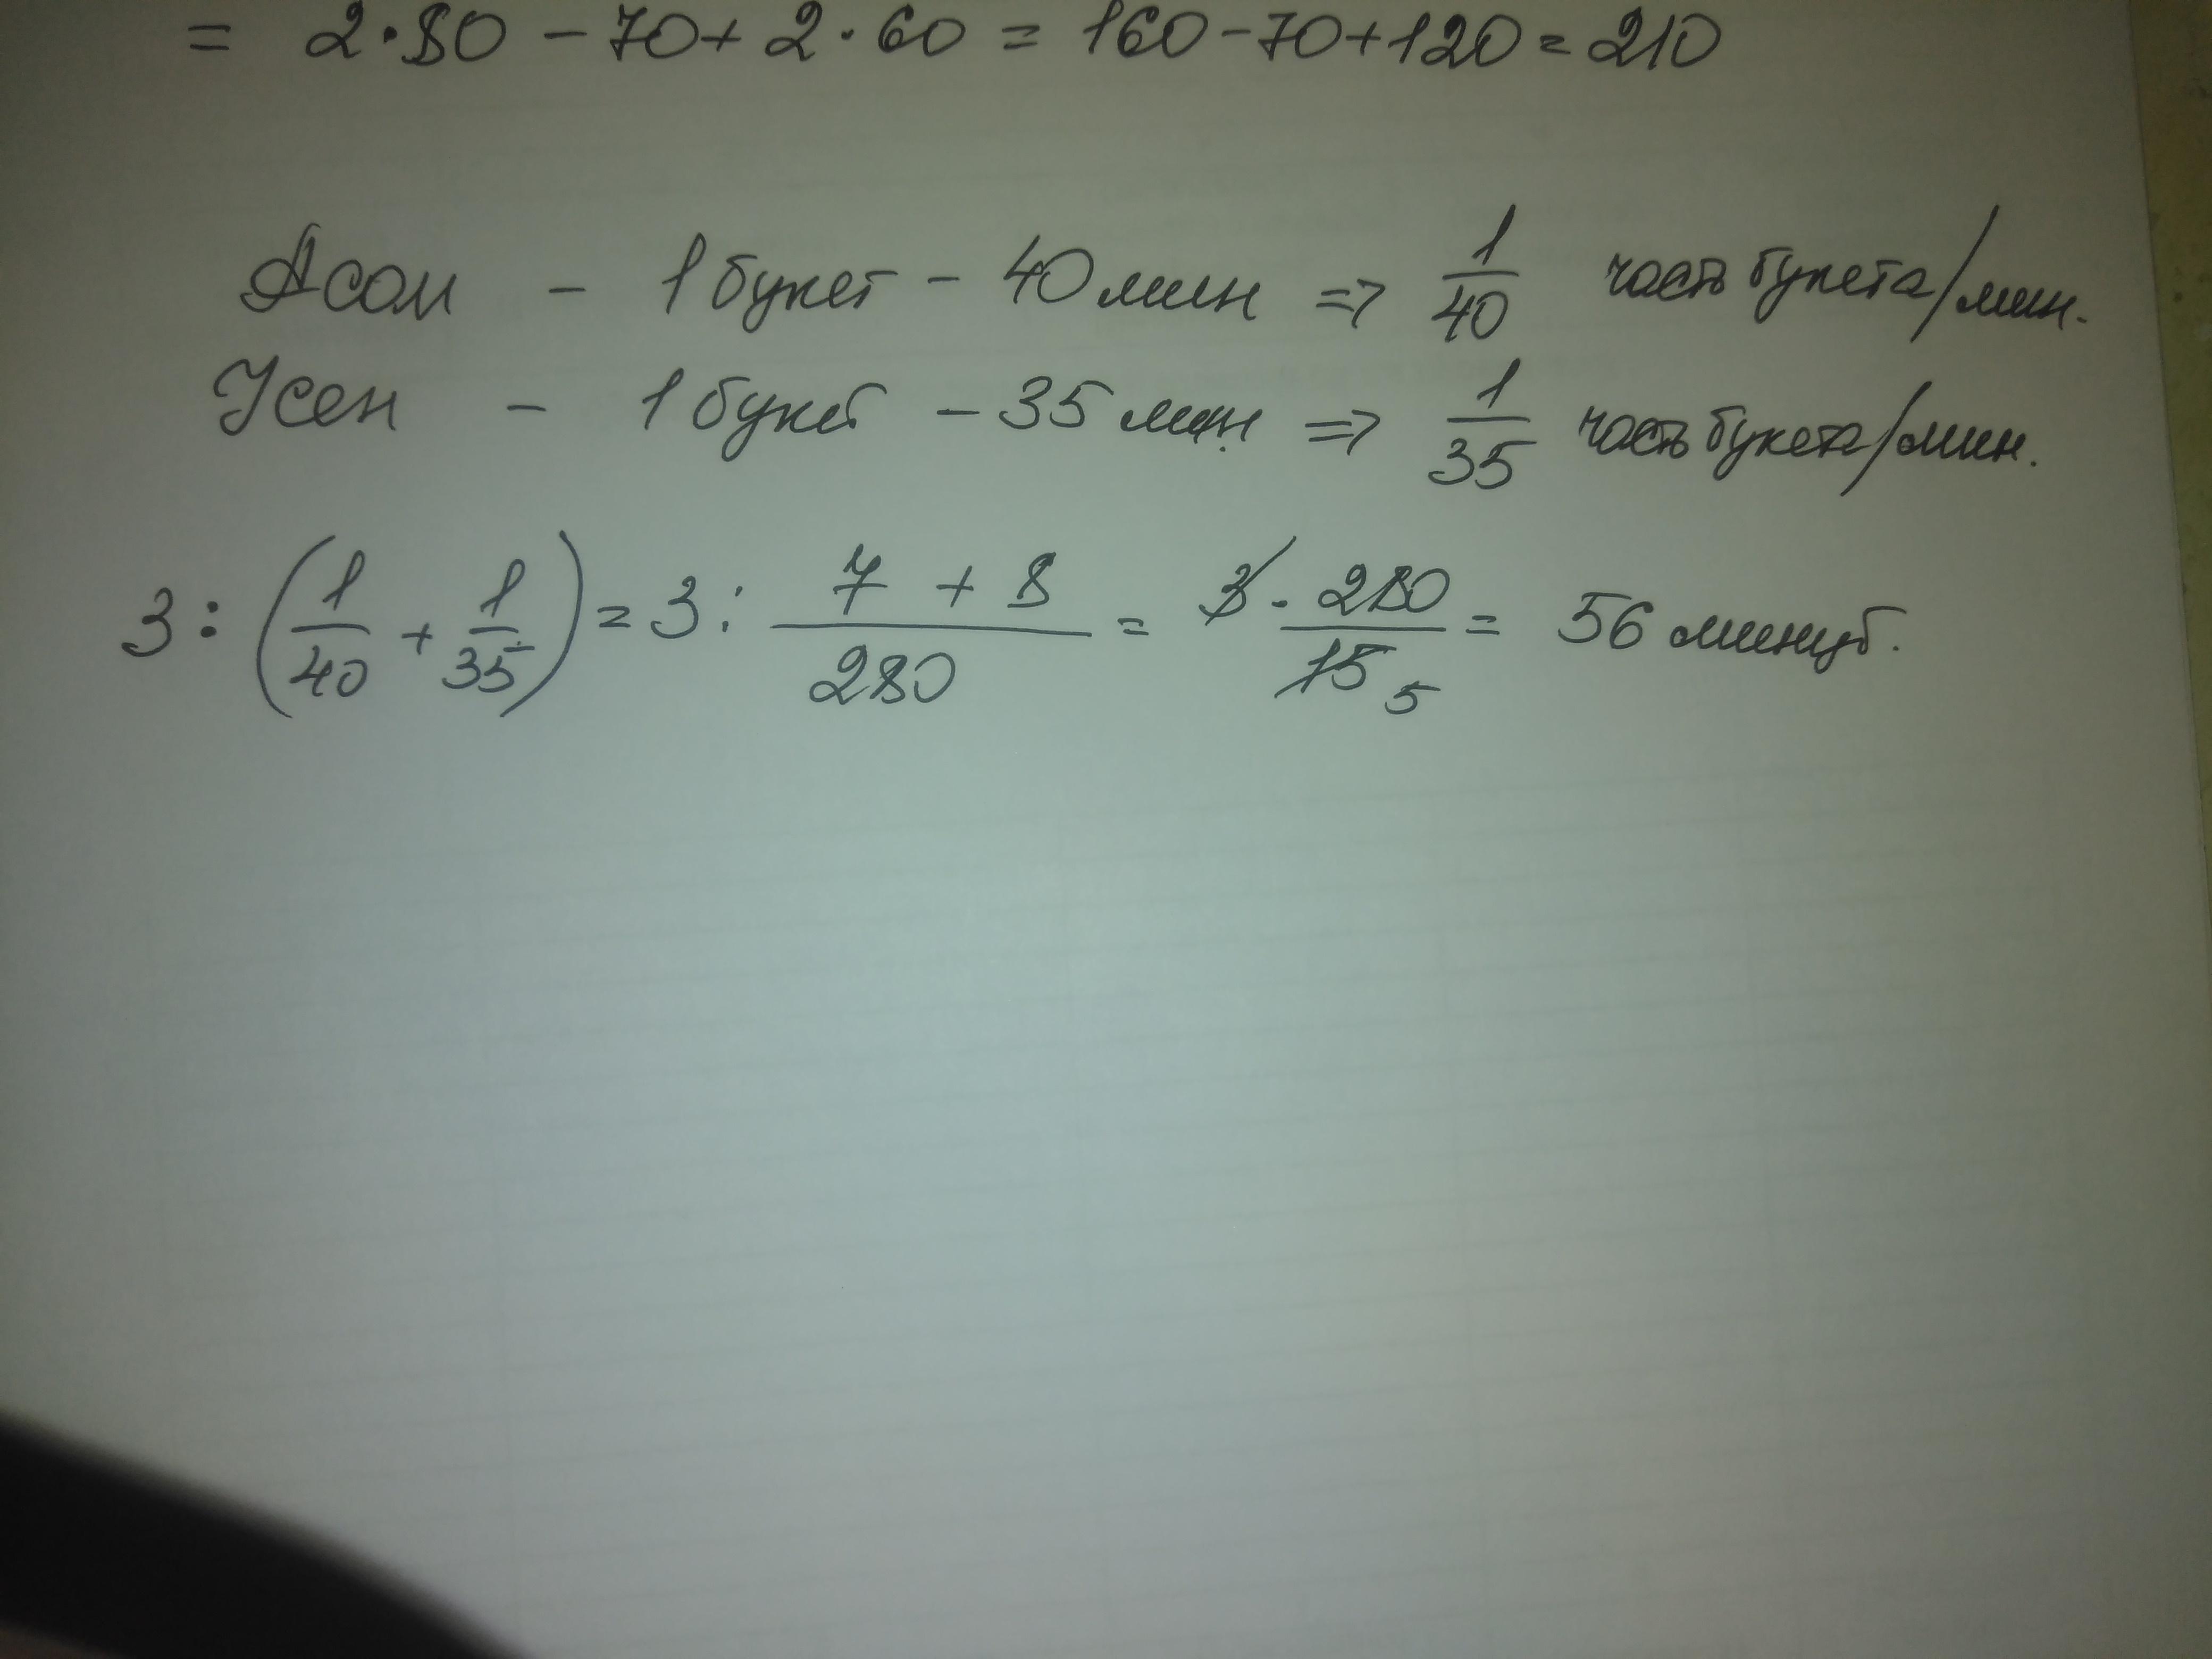 = 2·80 - 70 + 2·60 = 160 - 70 + 120 = 210
Асан - 1 букет - 40 мин => 1/40 часть букета/мин.
Усен - 1 букет - 35 мин => 1/35 часть букета/мин.
3 : (1/40 + 1/35) = 3 : (7 + 8)/280 = 3 · 280/15 5 = 56 минут.